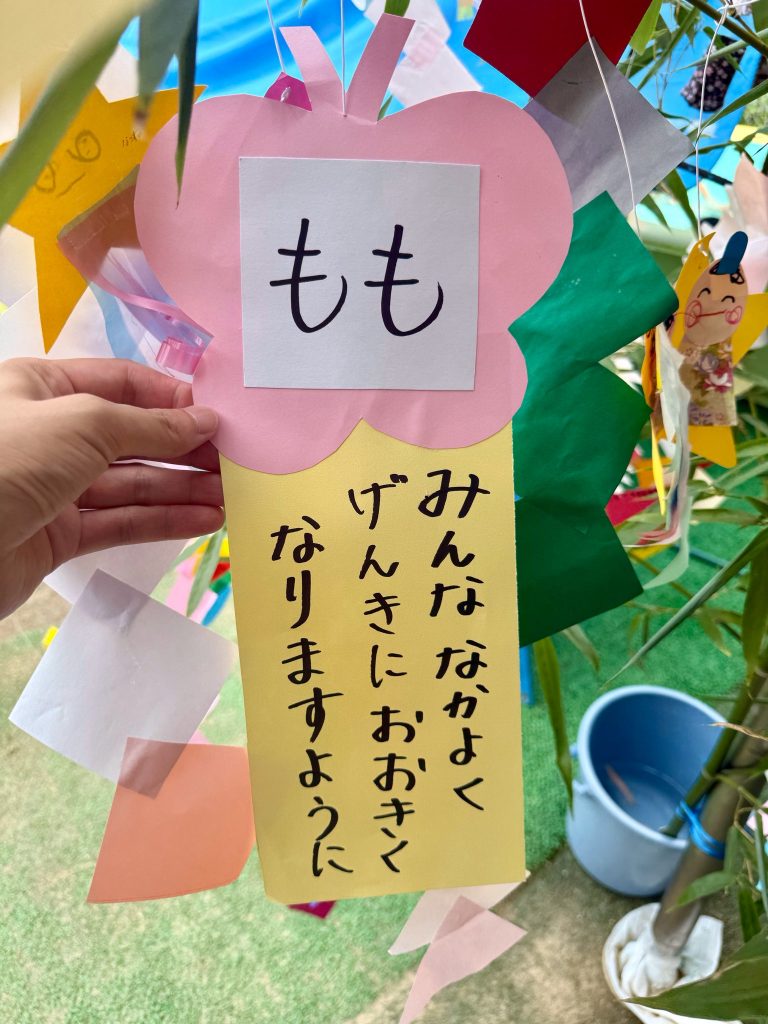 もも
みんな なかよく
げんきに おおきく
なりますように